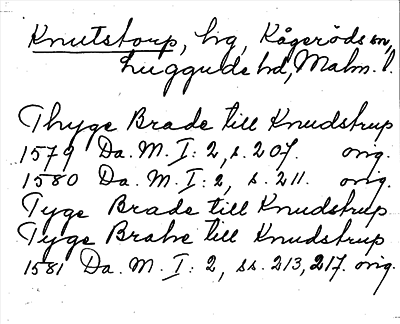 Knutstorp, hg, Kågeröds sn,
Luggude hd, Malm. l.
Thyge Brade till Knudstrup
1579 Da. M. I: 2, s. 207. orig.
1580 Da. M. I: 2, s. 211. orig.
Tyge Brade till Knudstrup
Tyge Brahe till Knudstrup
1581 Da. M. I: 2, ss. 213, 217. orig.